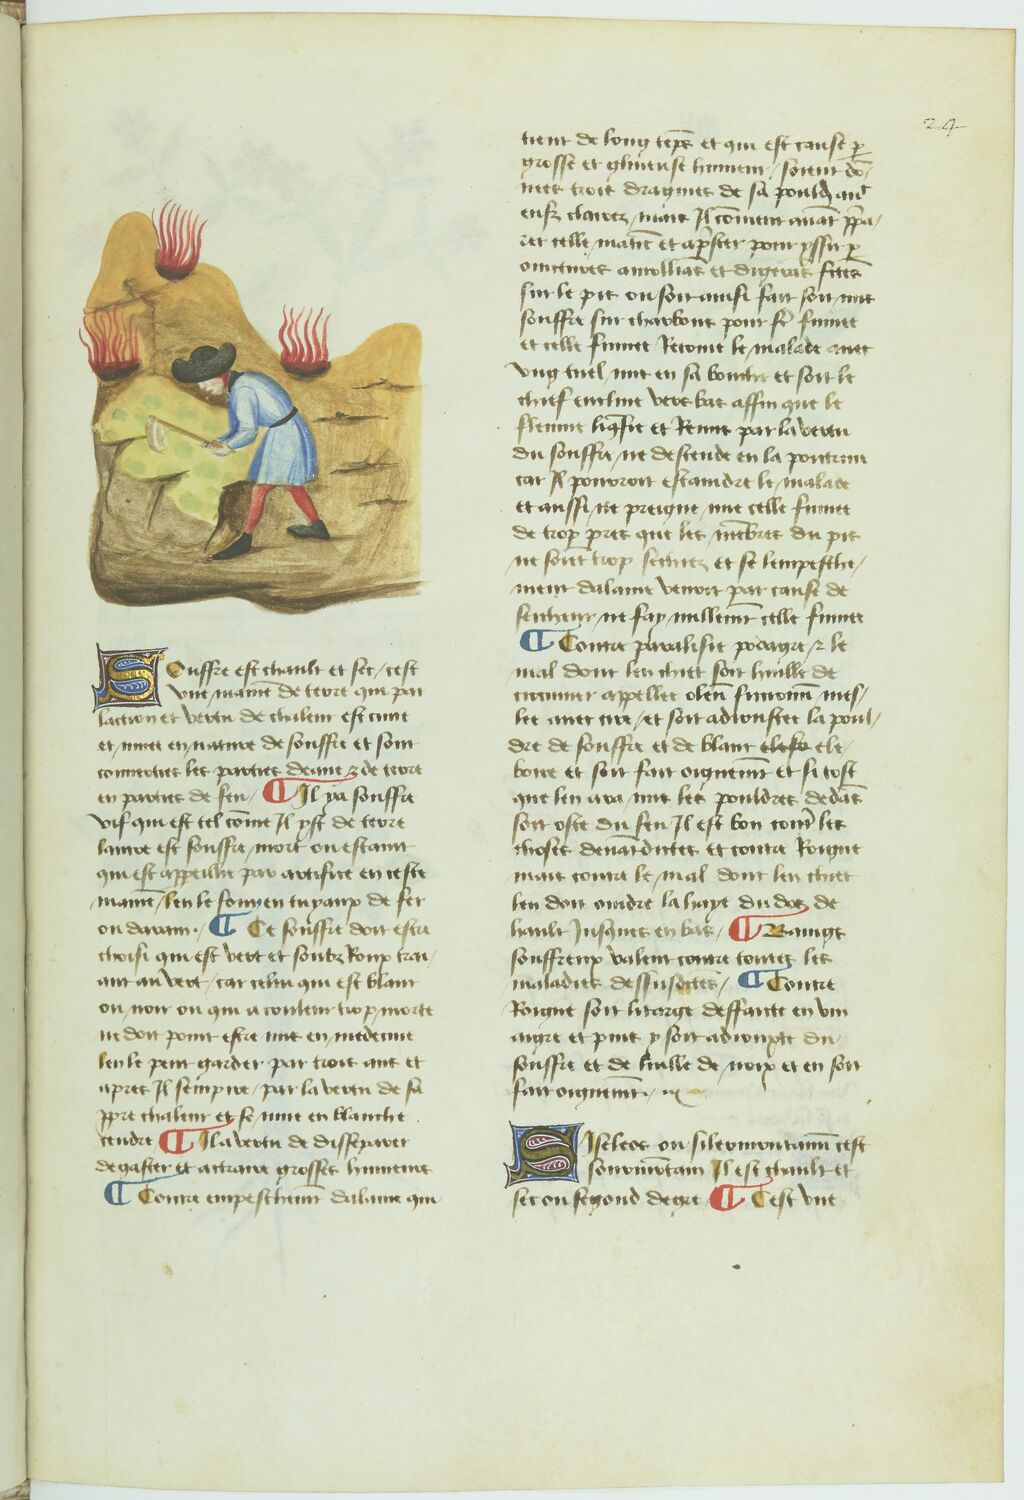 24
Souffre est chault et sec / cest
vne maniere de terre qui par
laction et vertu de chaleur est cuite
et muee en nature de souffre et sont
conuerties les parties deaue de terre
en parties de feu / ¶ Il ya souffre
vif qui est tel cōme Il yst de terre
lautre est souffre mort ou estaint
qui est appeille par artifice en ceste
len le font en tuyaux de fer
ou darain . ¶ Ce souffre doit estre
choisi qui est vert et soubz Roux trai /
ant au vert / car celui qui est blanc
ou noir ou qui a couleur trop morte
ne doit point estre mis en medecine
len le peut garder par trois ans et
apres Il sempire / par la vertu de sa
ppre chaleur et se mue en blanche
cendre ¶ Il a vertu de disseparer
degaster et attraire grosses humeurs
¶ Contre empeschemt dalaine qui
vient de long tēps et qui est cause p
grosse et glueuse humeur / soient dō /
nees trois dragmes de sa pouldre
mais Il cōuient auāt ppa /
rer celle matiē et apster pour yssir p
oinctures
sur le pis ou soit ainsi fait soit mis
souffre sur charbons pour fumee
et celle fumee Recoiue le malade auec
vng tuel mis en sa bouche et soit le
chief encline vers bas affin que le
fleume et Remis par la vertu
du souffre ne descende en la poitrine
car Il pourroit estaindre le malade
et aussi ne preigne mie celle fumee
de trop pres que les mēbres du pis
ne soiēt trop sechiez et se lempesche /
ment dalaine venoit par cause de
secheur ne fay nullemt celle fumee
¶ Contre paralisie podagre z le
mal dont len chiet soit huille de
appellee oleū mes /
lee auec cire / et soit adioustee la poul /
dre de souffre et de blanc ele /
bore et soit fait oignemt et si tost
que len ara mis les pouldres dedās
soit oste du feu Il est bon les
choses deuāt dictes et contre Roigne
mais contre le mal dont len chiet
len doit oindre la haye du dos de
hault Jusques en bas / ¶ Baings
souffreux valent contre toutes les
maladies dessusdictes / ¶ Contre
Roigne soit litarge deffaicte en vin
aigre et puis y soit adiouxte du
souffre et de huille de noix et en soit
fait oignemt .
Siseleos ou sileomontanū cest
Il est chault et
sec ou segond degre ¶ Cest vne